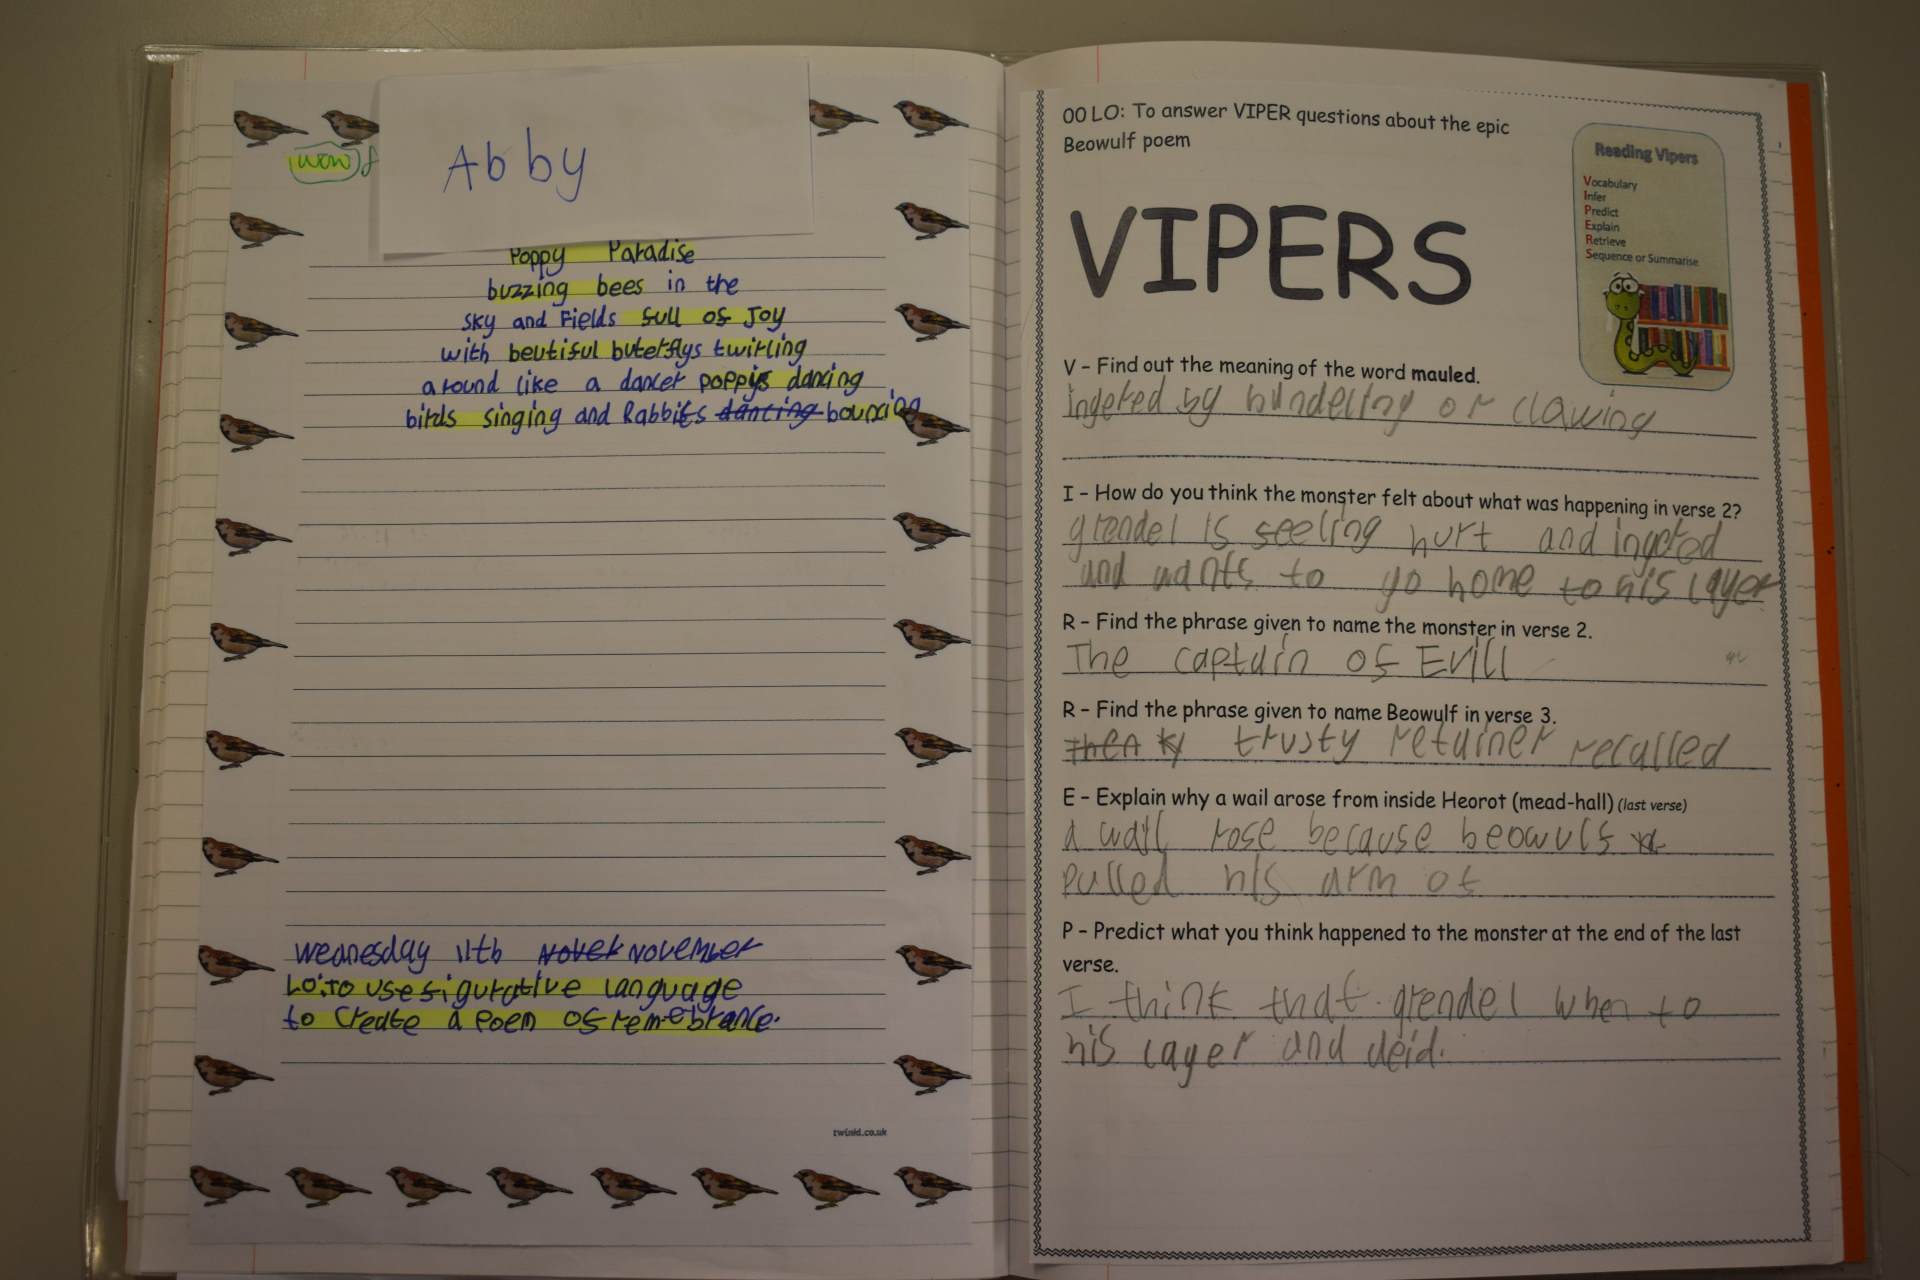 wow
Abby
Poppy Paradise
buzzing bees in the
sky and Fields full of Joy
with beutiful buterflys twirling
around like a dancer poppys dancing
birds singing and Rabbits dancing bouncing
wednesday 11th Nover November
LO: To use figurative language
to create a poem of remebrance.
twinkl.co.uk
00 LO: To answer VIPER questions about the epic
Beowulf poem
Reading Vipers
Vocabulary
Infer
Predict
Explain
Retrieve
Sequence or Summarise
VIPERS
V - Find out the meaning of the word mauled.
ingered by hundeling or clawing
I - How do you think the monster felt about what was happening in verse 2?
grendel is feeling hurt and ingered
and wants to go home to his layer
R - Find the phrase given to name the monster in verse 2.
The captain of Evill
R - Find the phrase given to name Beowulf in verse 3.
then trusty retainer recalled
E - Explain why a wail arose from inside Heorot (mead-hall) (last verse)
a wail rose because beowulf
pulled his arm of
P - Predict what you think happened to the monster at the end of the last
verse.
I think that grendel when to
his layer and deid.